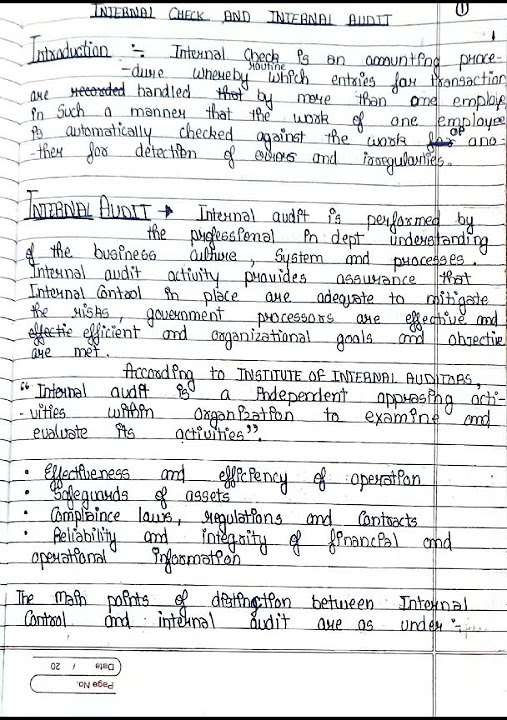 INTERNAL CHECK AND INTERNAL AUDIT
1
Introduction :- Internal Check is an accounting proce-
-dure whereby routine which entries for transaction
are recorded handled that by more than one employe
in Such a manner that the work of one employee
is automatically checked against the work for of ano-
-ther for detection of errors and irregularities.
INTERNAL AUDIT → Internal audit is performed by
the professional in dept understanding
of the business culture, System and processes.
Internal audit activity provides assurance that
Internal Control in place are adequate to mitigate
the risks, government processors are effective and
effectie efficient and organizational goals and objective
are met.
According to INSTITUTE OF INTERNAL AUDITORS,
"Internal audit is a independent appraising acti-
-vities within organization to examine and
evaluate its activities".
• Effectiveness and efficiency of operation
• Safeguards of assets
• Complaince laws, regulations and Contracts
• Reliability and integrity of financial and
operational information
The main points of distinction between Internal
Control and internal audit are as under :-
Date / 20
Page No.